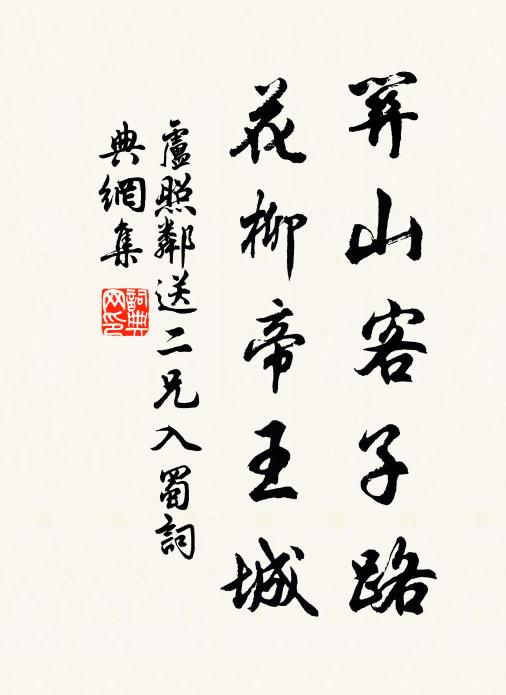 關山客子路
花柳帝王城
盧照鄰送二兄入蜀詞
典網集
詞典網印